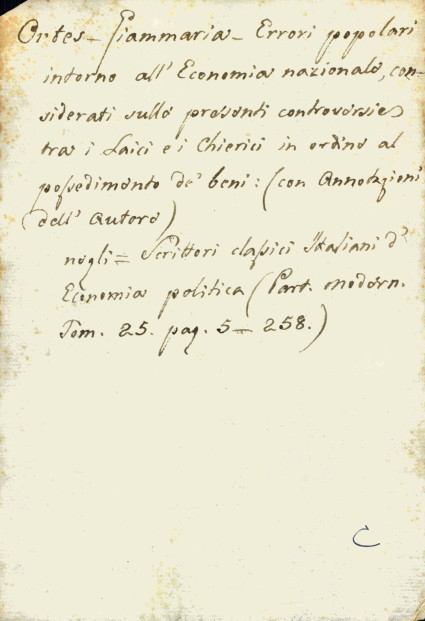 Ortes - Giammaria - Errori popolari
intorno all' Economia nazionale, con-
siderati sulle presenti controversie
tra i Laici e i Chierici in ordine al
possedimento de' beni: (con Annotazioni
dell' Autore)
negli = Scrittori classici Italiani d'
Economia politica (Part. modern.
Tom. 25. pag. 5 = 258.)
C